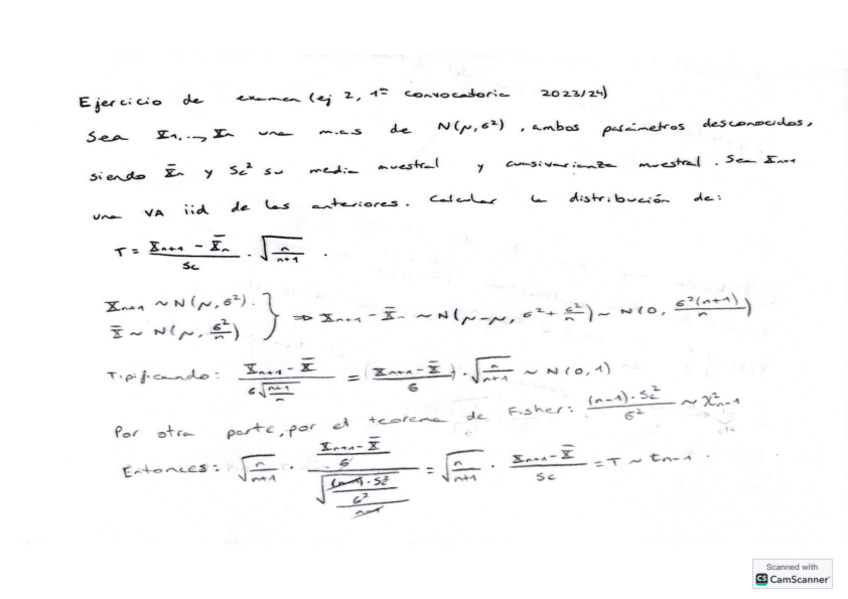 Ejercicio de examen (ej 2, 1ª convocatoria 2023/24)
Sea X₁,..., Xₙ una m.a.s de N(μ,σ²), ambos parámetros desconocidos,
siendo X̄ₙ y Sc² su media muestral y cuasivarianza muestral. Sea Xₙ₊₁
una VA iid de las anteriores. Calcular la distribución de:
T = (Xₙ₊₁ - X̄ₙ)/Sc · √(n/(n+1)) .
Xₙ₊₁ ~ N(μ,σ²). } ⇒ Xₙ₊₁ - X̄ₙ ~ N(μ-μ, σ² + σ²/n) ~ N(0, σ²(n+1)/n)
X̄ ~ N(μ, σ²/n)
Tipificando: (Xₙ₊₁ - X̄)/(σ√((n+1)/n)) = (Xₙ₊₁ - X̄)/σ · √(n/(n+1)) ~ N(0,1)
Por otra parte, por el teorema de Fisher: (n-1)·Sc²/σ² ~ χ²ₙ₋₁
Entonces: √(n/(n+1)) · ((Xₙ₊₁ - X̄)/σ)/√(((n-1)·Sc²/σ²)/(n-1)) = √(n/(n+1)) · (Xₙ₊₁ - X̄)/Sc = T ~ tₙ₋₁ .
Scanned with
CS CamScanner